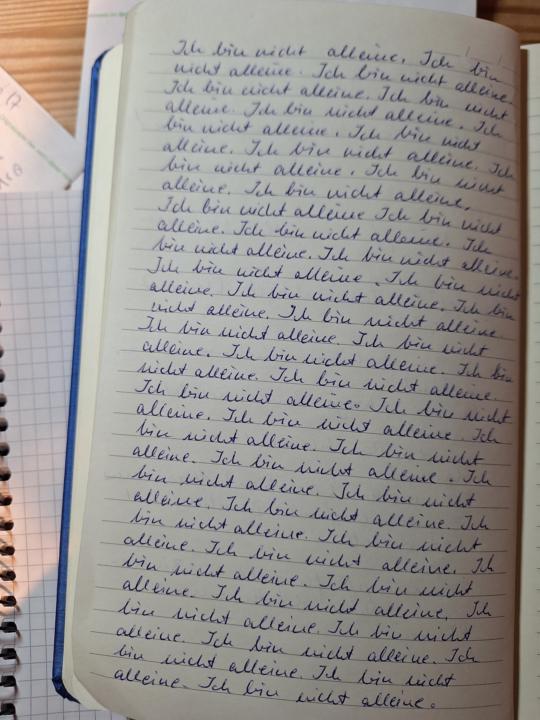 Ich bin nicht alleine. Ich bin
nicht alleine. Ich bin nicht alleine.
Ich bin nicht alleine. Ich bin nicht
alleine. Ich bin nicht alleine. Ich
bin nicht alleine. Ich bin nicht
alleine. Ich bin nicht alleine. Ich
bin nicht alleine. Ich bin nicht
alleine. Ich bin nicht alleine.
Ich bin nicht alleine Ich bin nicht
alleine. Ich bin nicht alleine. Ich
bin nicht alleine. Ich bin nicht alleine.
Ich bin nicht alleine. Ich bin nicht
alleine. Ich bin nicht alleine. Ich bin
nicht alleine. Ich bin nicht alleine
Ich bin nicht alleine. Ich bin nicht
alleine. Ich bin nicht alleine. Ich bin
nicht alleine. Ich bin nicht alleine.
Ich bin nicht alleine. Ich bin nicht
alleine. Ich bin nicht alleine. Ich
bin nicht alleine. Ich bin nicht
alleine. Ich bin nicht alleine. Ich
bin nicht alleine. Ich bin nicht
alleine. Ich bin nicht alleine. Ich
bin nicht alleine. Ich bin nicht
alleine. Ich bin nicht alleine. Ich
bin nicht alleine. Ich bin nicht
alleine. Ich bin nicht alleine. Ich
bin nicht alleine. Ich bin nicht
alleine. Ich bin nicht alleine. Ich
bin nicht alleine. Ich bin nicht
alleine. Ich bin nicht alleine.